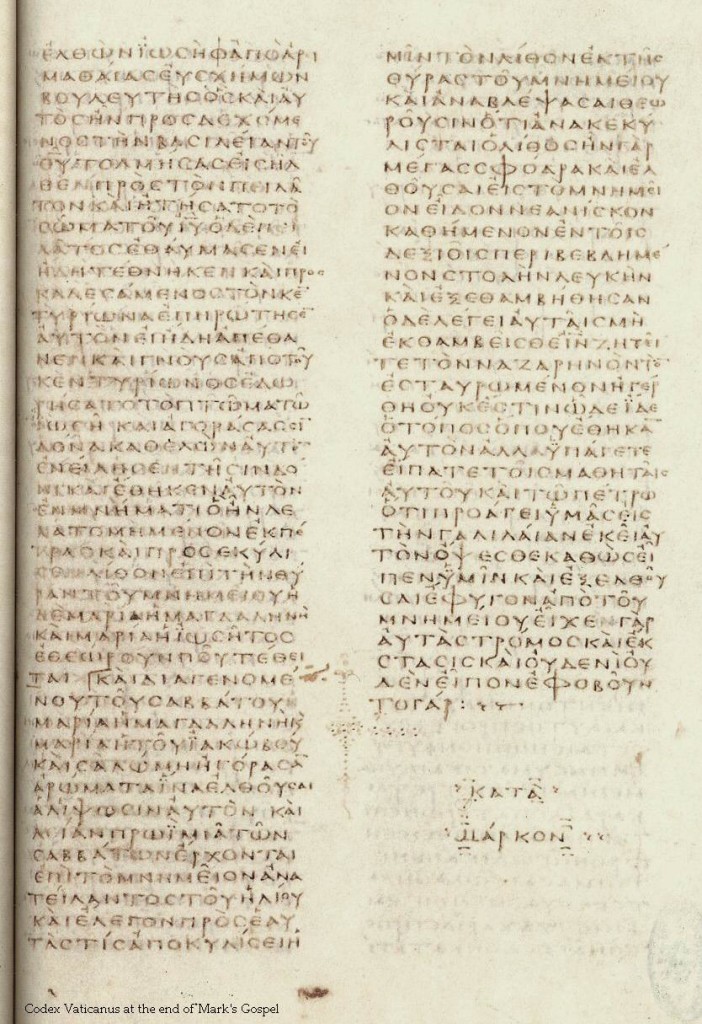 ΕΛΘΩΝΪΩϹΗΦΑΠΟΑΡΙ
ΜΑΘΑΙΑϹΕΥϹΧΗΜΩΝ
ΒΟΥΛΕΥΤΗϹΟϹΚΑΙΑΥ
ΤΟϹΗΝΠΡΟϹΔΕΧΟΜΕ
ΝΟϹΤΗΝΒΑϹΙΛΕΙΑΝΤΟΥ
ΘΥΤΟΛΜΗϹΑϹΕΙϹΗΛ
ΘΕΝΠΡΟϹΤΟΝΠΕΙΛΑ
ΤΟΝΚΑΙΗΤΗϹΑΤΟΤΟ
ϹΩΜΑΤΟΥΙΥΟΔΕΠΕΙ
ΛΑΤΟϹΕΘΑΥΜΑϹΕΝΕΙ
ΗΔΗΤΕΘΝΗΚΕΝΚΑΙΠΡΟϹ
ΚΑΛΕϹΑΜΕΝΟϹΤΟΝΚΕ
ΤΥΡΙΩΝΑΕΠΗΡΩΤΗϹΕ
ΑΥΤΟΝΕΙΗΔΗΑΠΕΘΑ
ΝΕΝΚΑΙΓΝΟΥϹΑΠΟΤΟΥ
ΚΕΝΤΥΡΙΩΝΟϹΕΔΩ
ΡΗϹΑΤΟΤΟΠΤΩΜΑΤΩ
ΪΩϹΗ ΚΑΙΑΓΟΡΑϹΑϹϹΙ
ΔΟΝΑΚΑΘΕΛΩΝΑΥΤΟ
ΕΝΕΙΛΗϹΕΝΤΗϹΙΝΔΟ
ΝΙΚΑΙΕΘΗΚΕΝΑΥΤΟΝ
ΕΝΜΝΗΜΑΤΙΟΗΝΛΕ
ΛΑΤΟΜΗΜΕΝΟΝΕΚΠΕ
ΤΡΑϹΚΑΙΠΡΟϹΕΚΥΛΙ
ϹΕΝΛΙΘΟΝΕΠΙΤΗΝΘΥ
ΡΑΝΤΟΥΜΝΗΜΕΙΟΥΗ
ΔΕΜΑΡΙΑΗΜΑΓΔΑΛΗΝΗ
ΚΑΙΜΑΡΙΑΗΪΩϹΗΤΟϹ
ΕΘΕΩΡΟΥΝΠΟΥΤΕΘΕΙ
ΤΑΙ ΚΑΙΔΙΑΓΕΝΟΜΕ
ΝΟΥΤΟΥϹΑΒΒΑΤΟΥ
ΜΑΡΙΑΗΜΑΓΔΑΛΗΝΗΚ
ΜΑΡΙΑΗΤΟΥΪΑΚΩΒΟΥ
ΚΑΙϹΑΛΩΜΗΗΓΟΡΑϹΑ
ΑΡΩΜΑΤΑΪΝΑΕΛΘΟΥϹΑΙ
ΑΛΙΨΩϹΙΝΑΥΤΟΝ ΚΑΙ
ΛΙΑΝΠΡΩΪΜΙΑΤΩΝ
ϹΑΒΒΑΤΩΝΕΡΧΟΝΤΑΙ
ΕΠΙΤΟΜΝΗΜΕΙΟΝΑΝΑ
ΤΕΙΛΑΝΤΟϹΤΟΥΗΛΙΟΥ
ΚΑΙΕΛΕΓΟΝΠΡΟϹΕΑΥ
ΤΑϹΤΙϹΑΠΟΚΥΛΙϹΕΙΗ
ΜΙΝΤΟΝΛΙΘΟΝΕΚΤΗϹ
ΘΥΡΑϹΤΟΥΜΝΗΜΕΙΟΥ
ΚΑΙΑΝΑΒΛΕΨΑϹΑΙΘΕΩ
ΡΟΥϹΙΝΟΤΙΑΝΑΚΕΚΥ
ΛΙϹΤΑΙΟΛΙΘΟϹΗΝΓΑΡ
ΜΕΓΑϹϹΦΟΔΡΑΚΑΙΕΛ
ΘΟΥϹΑΙΕΙϹΤΟΜΝΗΜΕΙ
ΟΝΕΙΔΟΝΝΕΑΝΙϹΚΟΝ
ΚΑΘΗΜΕΝΟΝΕΝΤΟΙϹ
ΔΕΞΙΟΙϹΠΕΡΙΒΕΒΛΗΜΕ
ΝΟΝϹΤΟΛΗΝΛΕΥΚΗΝ
ΚΑΙΕΞΕΘΑΜΒΗΘΗϹΑΝ
ΟΔΕΛΕΓΕΙΑΥΤΑΙϹΜΗ
ΕΚΘΑΜΒΕΙϹΘΕΙΝΖΗΤΕΙ
ΤΕΤΟΝΝΑΖΑΡΗΝΟΝΤΟ
ΕϹΤΑΥΡΩΜΕΝΟΝΗΓΕΡ
ΘΗΟΥΚΕϹΤΙΝΩΔΕΪΔΕ
ΟΤΟΠΟϹΟΠΟΥΕΘΗΚΑ
ΑΥΤΟΝΑΛΛΑΫΠΑΓΕΤΕ
ΕΙΠΑΤΕΤΟΙϹΜΑΘΗΤΑΙϹ
ΑΥΤΟΥΚΑΙΤΩΠΕΤΡΩ
ΟΤΙΠΡΟΑΓΕΙΫΜΑϹΕΙϹ
ΤΗΝΓΑΛΙΛΑΙΑΝΕΚΕΙΑΥ
ΤΟΝΟΨΕϹΘΕΚΑΘΩϹΕΙ
ΠΕΝΫΜΙΝΚΑΙΕΞΕΛΘΟΥ
ϹΑΙΕΦΥΓΟΝΑΠΟΤΟΥ
ΜΝΗΜΕΙΟΥΕΙΧΕΝΓΑΡ
ΑΥΤΑϹΤΡΟΜΟϹΚΑΙΕΚ
ϹΤΑϹΙϹΚΑΙΟΥΔΕΝΙΟΥ
ΔΕΝΕΙΠΟΝΕΦΟΒΟΥΝ
ΤΟΓΑΡ:
ΚΑΤΑ
ΜΑΡΚΟΝ
Codex Vaticanus at the end of Mark's Gospel